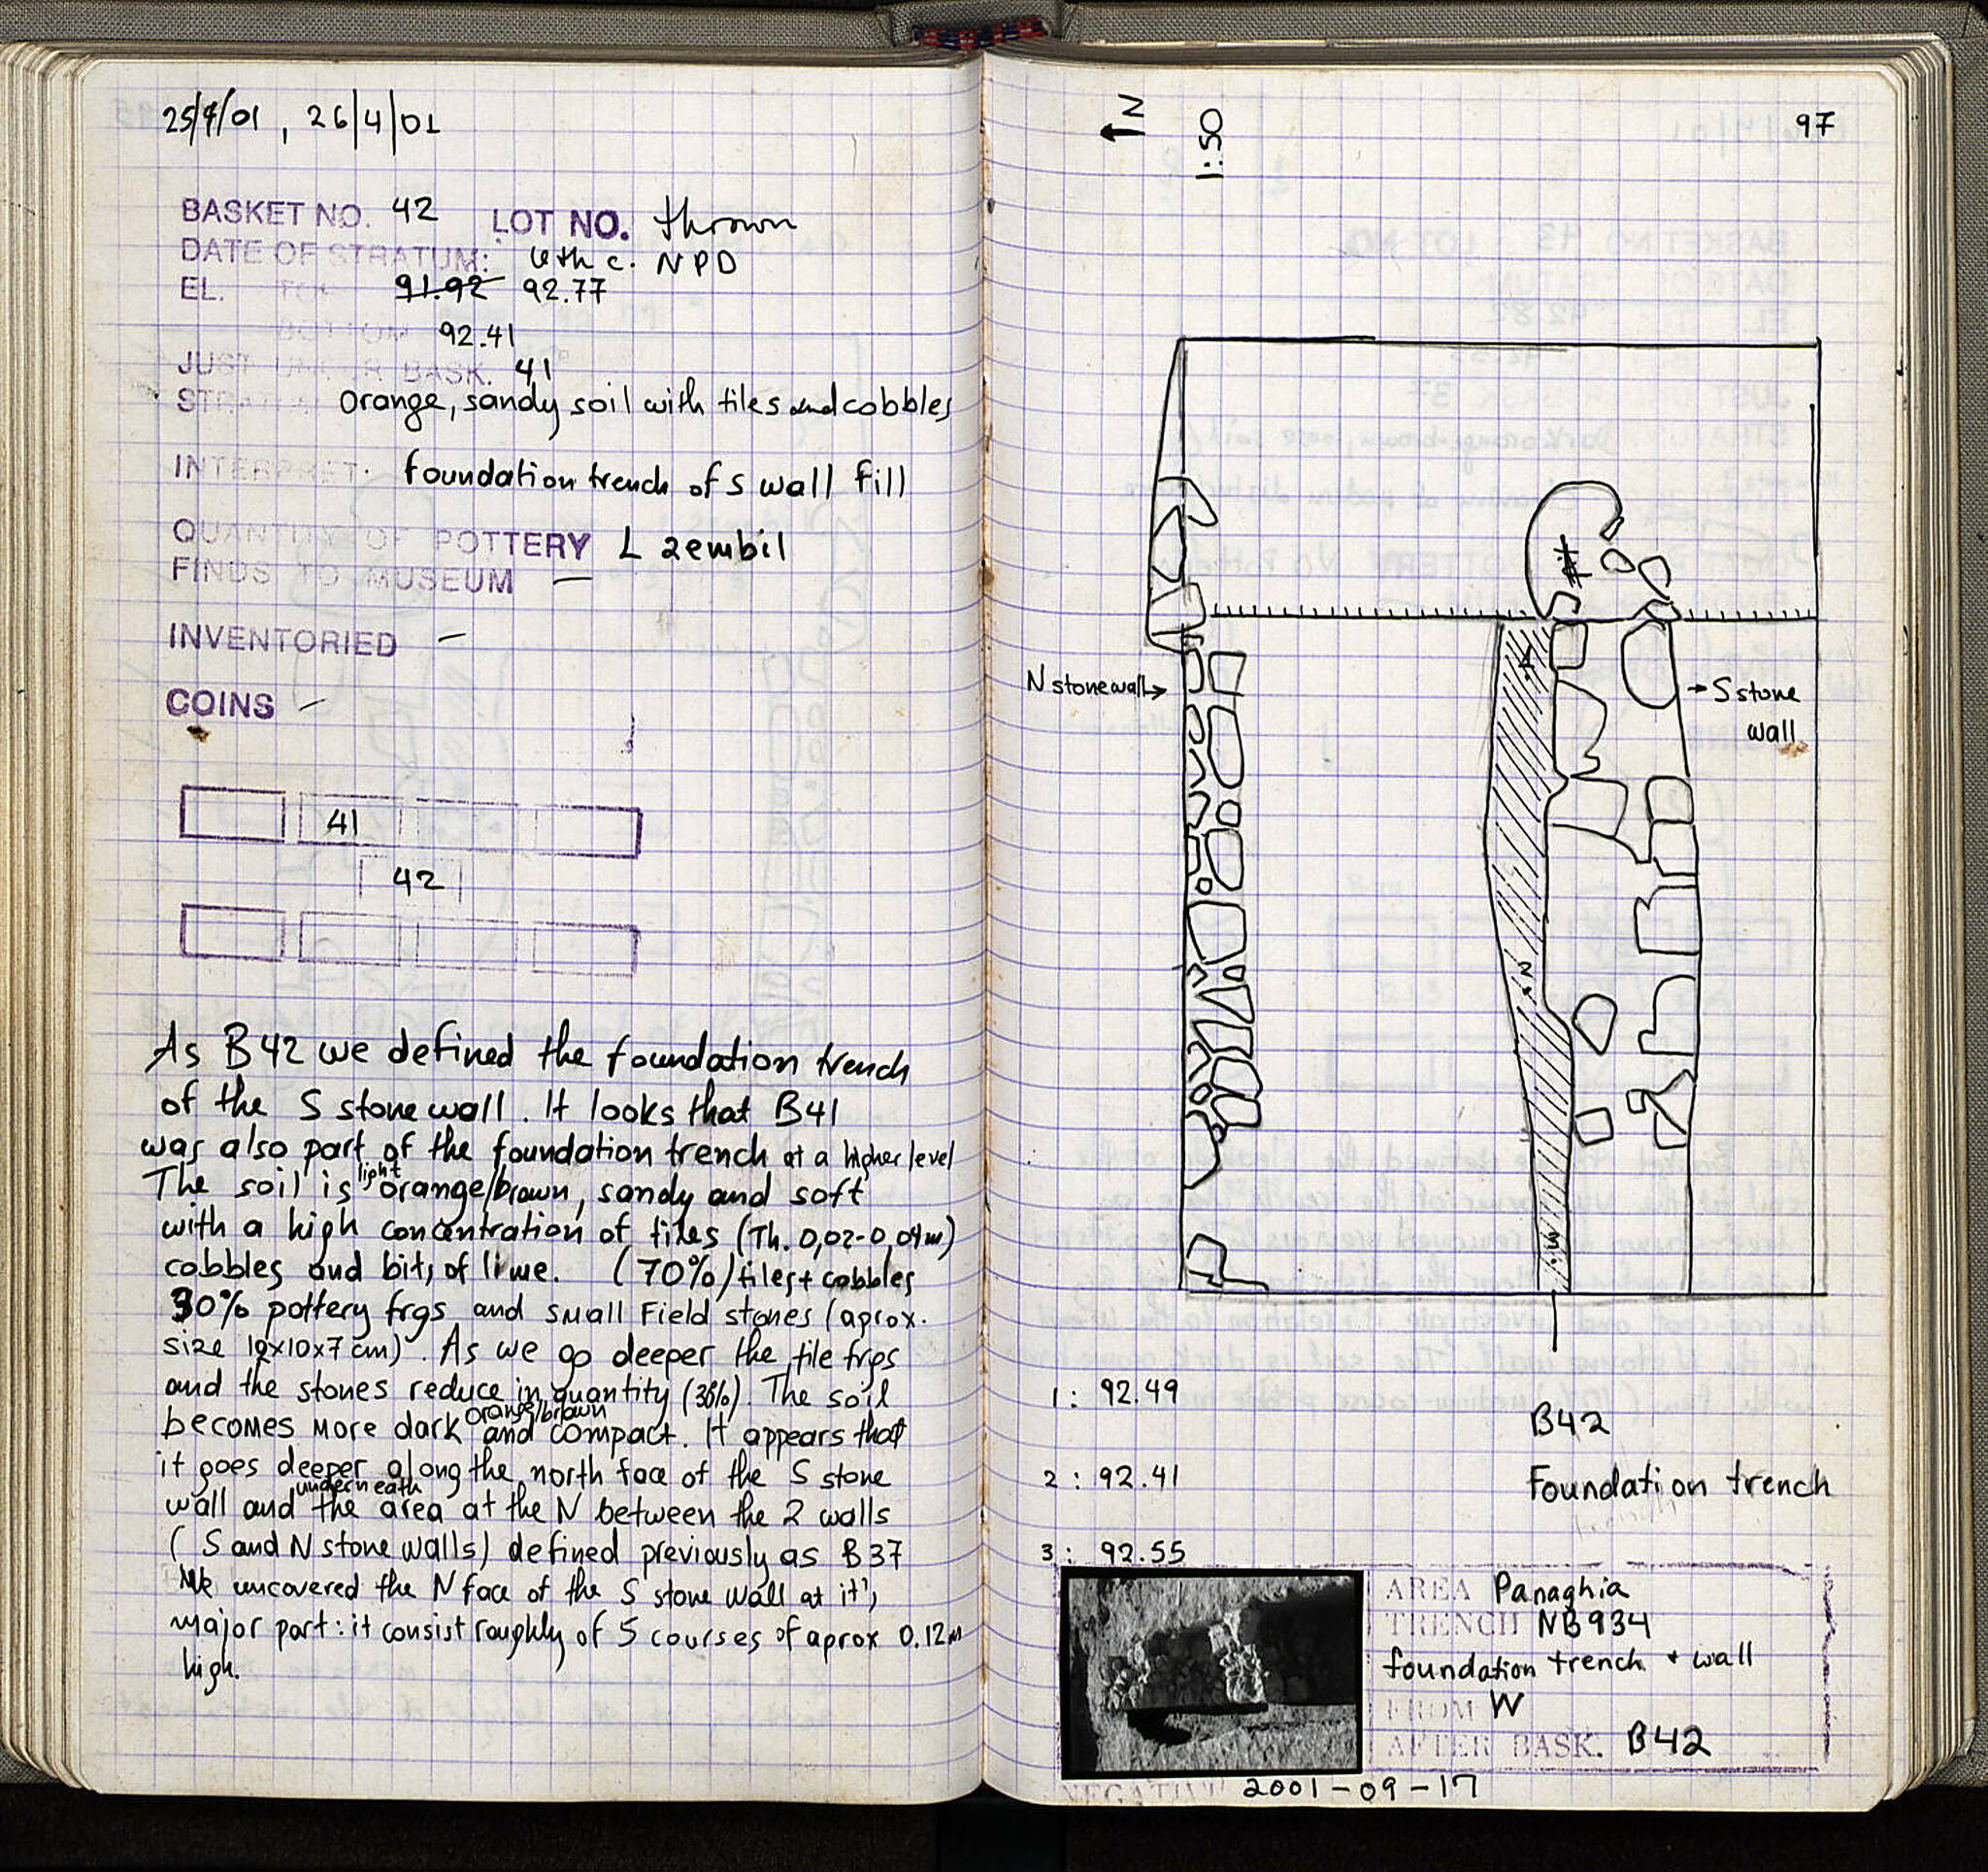 25/4/01, 26/4/01
BASKET NO. 42 LOT NO. thrown
DATE OF STRATUM: 6th c. NPD
EL. TOP 91.92 92.77
BOTTOM 92.41
JUST UNDER BASK. 41
STRATUM orange, sandy soil with tiles and cobbles
INTERPRET: foundation trench of S wall fill
QUANTITY OF POTTERY 1 zembil
FINDS TO MUSEUM —
INVENTORIED —
COINS —
41
42
As B42 we defined the foundation trench
of the S stone wall. It looks that B41
was also part of the foundation trench at a higher level
The soil is light orange/brown, sandy and soft
with a high concentration of tiles (Th. 0,02-0,04m)
cobbles and bits of lime. (70%) tiles+ cobbles
30% pottery frgs and small field stones (aprox.
size 10x10x7 cm). As we go deeper the tile frgs
and the stones reduce in quantity (30%). The soil
becomes more dark orange/brown and compact. It appears that
it goes deeper along the north face of the S stone
wall and underneath the area at the N between the 2 walls
(S and N stone walls) defined previously as B37
We uncovered the N face of the S stone wall at it's
major part: it consist roughly of 5 courses of aprox 0.12m
high.
97
N
1:50
N stone wall
S stone
wall
1
2
3
1: 92.49
2: 92.41
3: 92.55
B42
Foundation trench
AREA Panaghia
TRENCH NB934
foundation trench + wall
FROM W
AFTER BASK. B42
NEGATIVE 2001-09-17